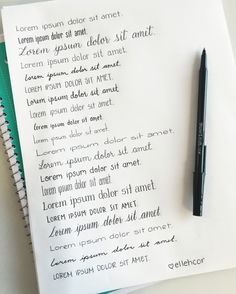 Lorem ipsum dolor sit amet.
Lorem ipsum dolor sit amet.
Lorem ipsum dolor sit amet.
Lorem ipsum dolor sit amet.
Lorem ipsum dolor sit amet.
LOREM IPSUM DOLOR SIT AMET.
Lorem ipsum dolor sit amet
Lorem ipsum dolor sit amet.
Lorem ipsum dolor sit amet
Lorem ipsum dolor sit amet.
Lorem ipsum dolor sit amet.
Lorem ipsum dolor sit amet.
LOREM IPSUM DOLOR SIT AMET.
Lorem ipsum dolor sit amet.
Lorem ipsum dolor sit amet.
LOREM IPSUM DOLOR SIT AMET.
Lorem ipsum dolor sit amet.
Lorem ipsum dolor sit amet.
Lorem ipsum dolor sit amet.
LOREM IPSUM DOLOR SIT AMET.
♡ellehcor